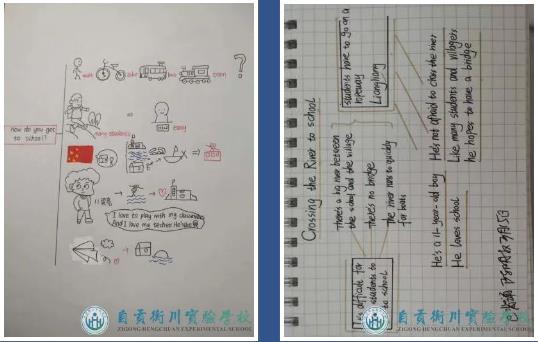 How do you get
to school?
walk
bike
bus
train
?
many students
easy
I love to play with my classmates
And I love my teacher
自贡衡川实验学校
ZIGONG HENGCHUAN EXPERIMENTAL SCHOOL
Crossing the River to school
It's difficult for
students to
to school
There's a big river between
the school and the village
There's no bridge
The river runs to quickly
for boats
students have to go on a
ropeway
Liangliang
He's a 11-year-old boy
He loves school
He's not afraid to cross the river
Like many students and villagers
he hopes to have a bridge
自贡衡川实验学校
ZIGONG HENGCHUAN EXPERIMENTAL SCHOOL